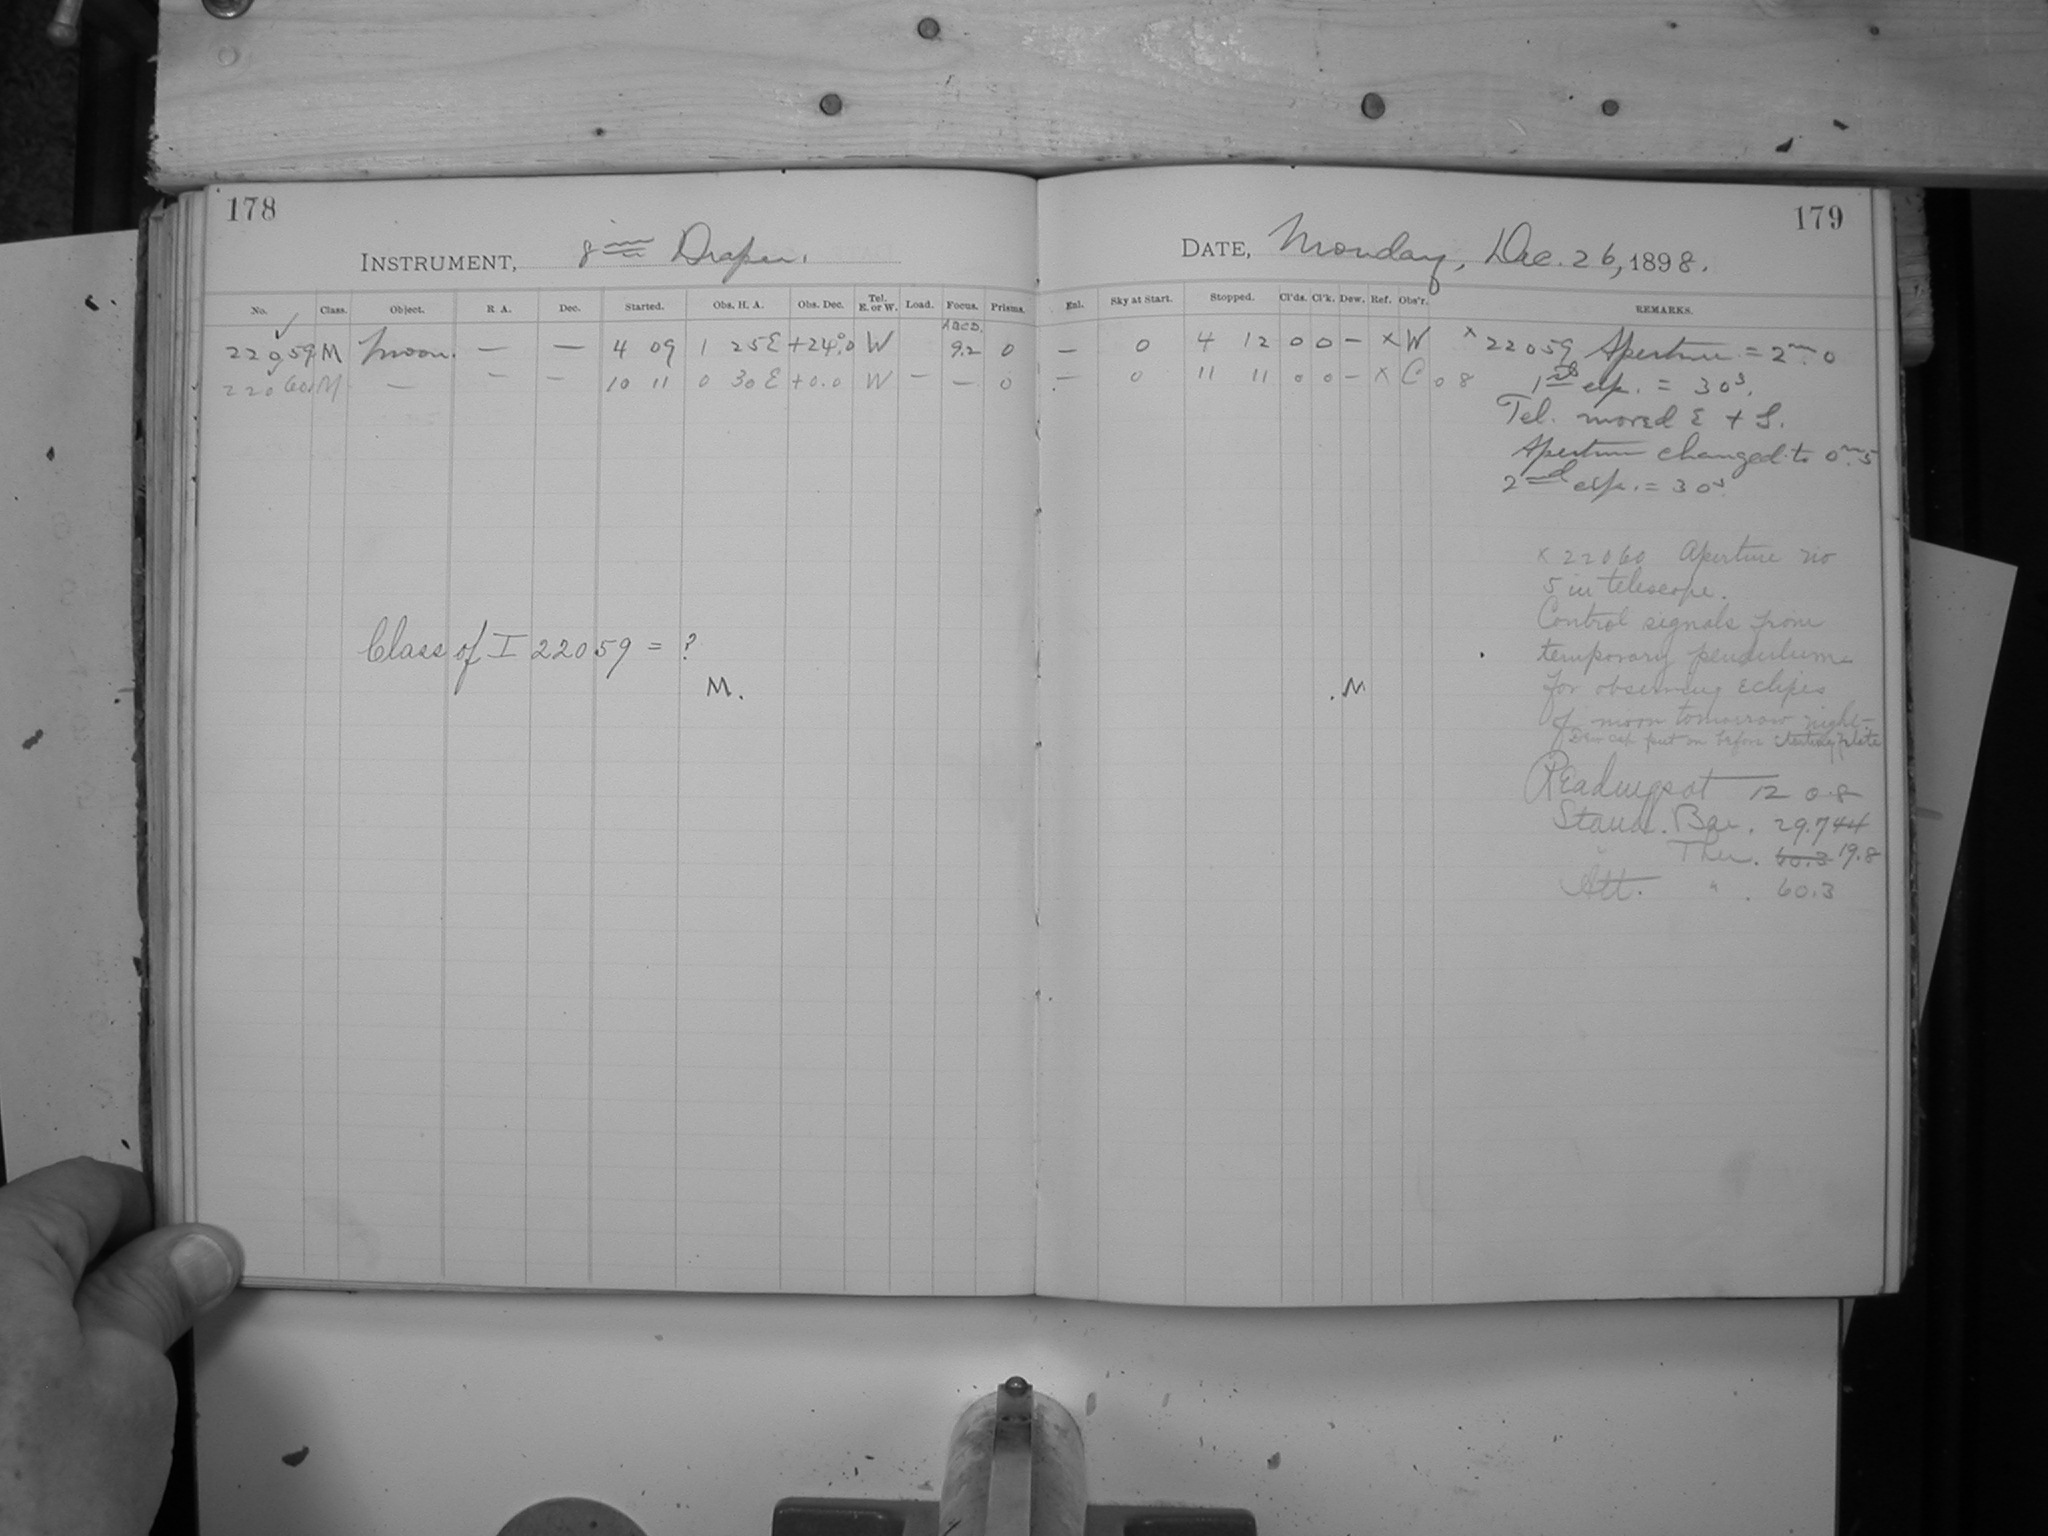 178
INSTRUMENT, 8 in Draper.
No. Class. Object. R. A. Dec. Started. Obs. H. A. Obs. Dec. Tel. E. or W. Load. Focus. Prisms.
22059 M Moon. — — 4 09 1 25 E +24°.0 W ABCD. 9.2 0
22060 M — — — 10 11 0 30 E +0.0 W — — 0
Class of I 22059 = ?
M.
179
DATE, Monday, Dec. 26, 1898.
Enl. Sky at Start. Stopped. Cl'ds. Cl'k. Dew. Ref. Obs'r. REMARKS.
— 0 4 12 0 0 — x W
— 0 11 11 0 0 — x C 08
x 22059 Aperture = 2 in.0
1st exp. = 30s.
Tel. moved E + S.
Aperture changed to 0 in.5
2nd exp. = 30s
x 22060 Aperture no
5 in telescope.
Control signals from
temporary pendulum
for observing Eclipes
of moon tomorrow night—
Dew cap put on before starting plate
. M
Readings at 12 0.8
Stand. Bar. 29.744
" Ther. 60.3 19.8
Att. " . 60.3